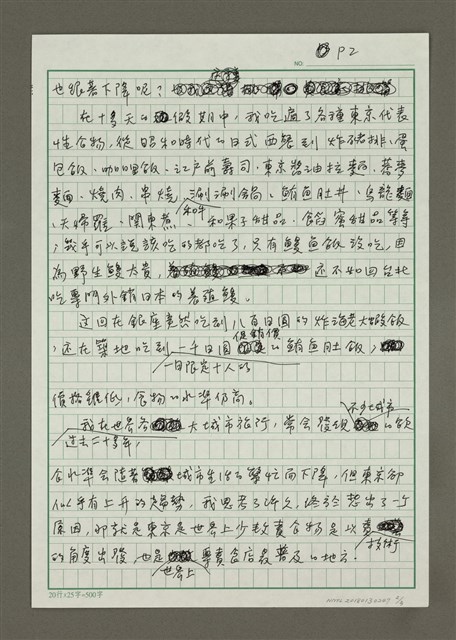 P2
NO.
也跟著下降呢？
在十多天的假期中，我吃遍了各種東京代表
性食物，從昭和時代的日式西餐到炸豬排、蛋
包飯、咖哩飯、江戶前壽司、東京醬油拉麵、蕎麥
麵、燒肉、串燒、涮涮鍋、鮪魚肚丼、烏龍麵
、天婦羅、関東煮、和果子甜品、餡蜜甜品等等
，幾乎可以說該吃的都吃了，只有鰻魚飯沒吃，因
為野生鰻太貴，還不如回台北
吃專門外銷日本的養殖鰻。
這回在銀座竟然吃到八百日圓的炸海老大蝦飯
，還在築地吃到一千日圓促銷價的鮪魚肚飯，
一日限定十人的
價格雖低，食物的水準仍高。
過去二十多年，
我在世界各大城市旅行，常會發現不少城市的飲
食水準會隨著城市生活之繁忙而下降，但東京卻
似乎有上升的趨勢，我思考了許久，終於想出了一個
原因，那就是東京是世界上少數賣食物是以賣技術
的角度出發，也是世界上專賣食店最普及的地方。
20行×25字=500字